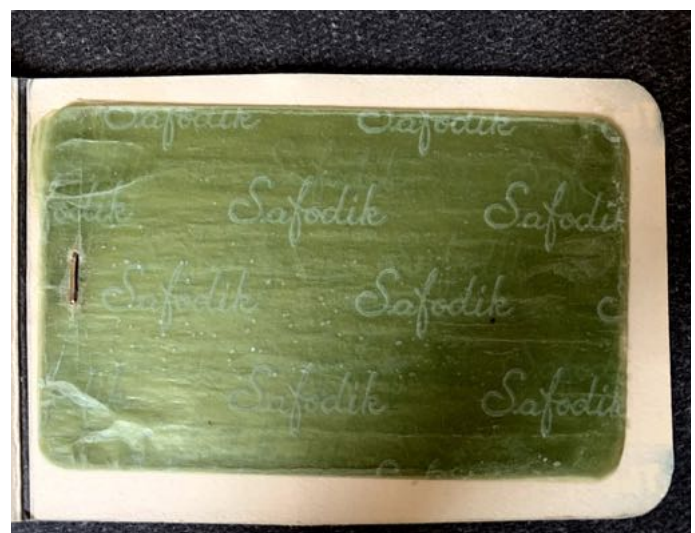 Safodik Safodik
Safodik Safodik
Safodik Safodik
Safodik Safodik